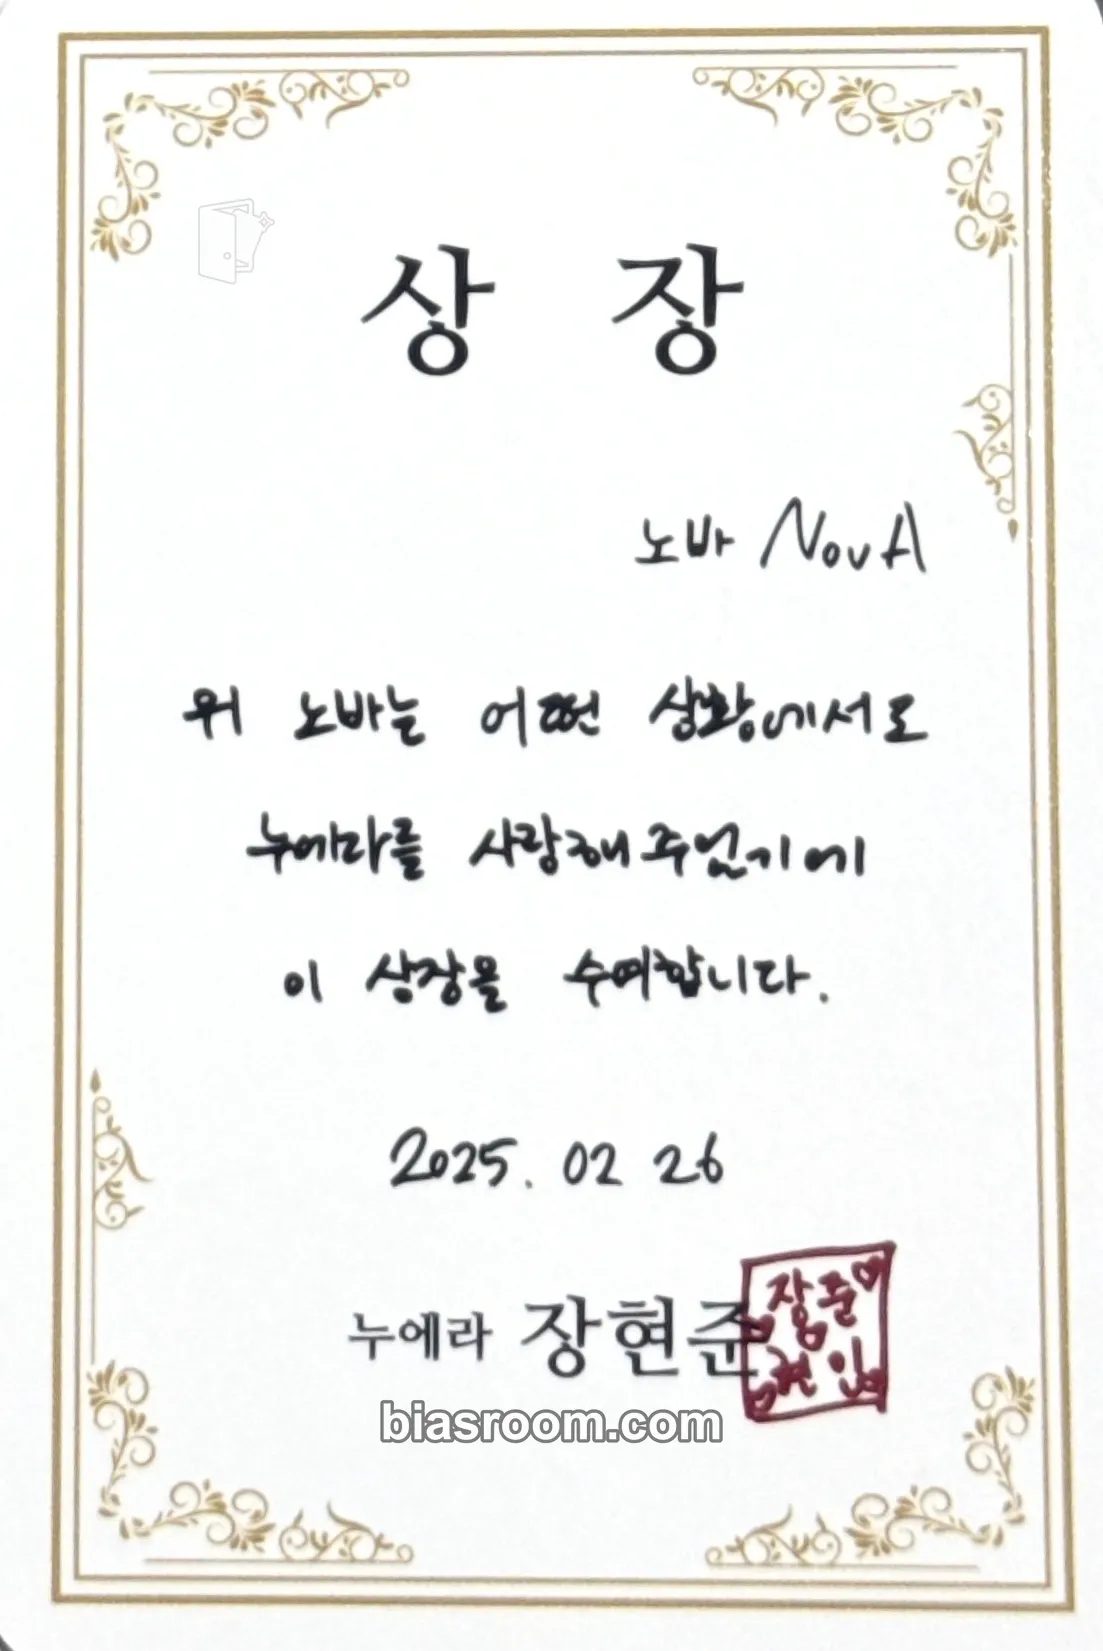 상 장
노바 NovA
위 노바는 어떤 상황에서도
누에라를 사랑해주었기에
이 상장을 수여합니다.
2025. 02 26
누에라 장현준
장준
현인
biasroom.com